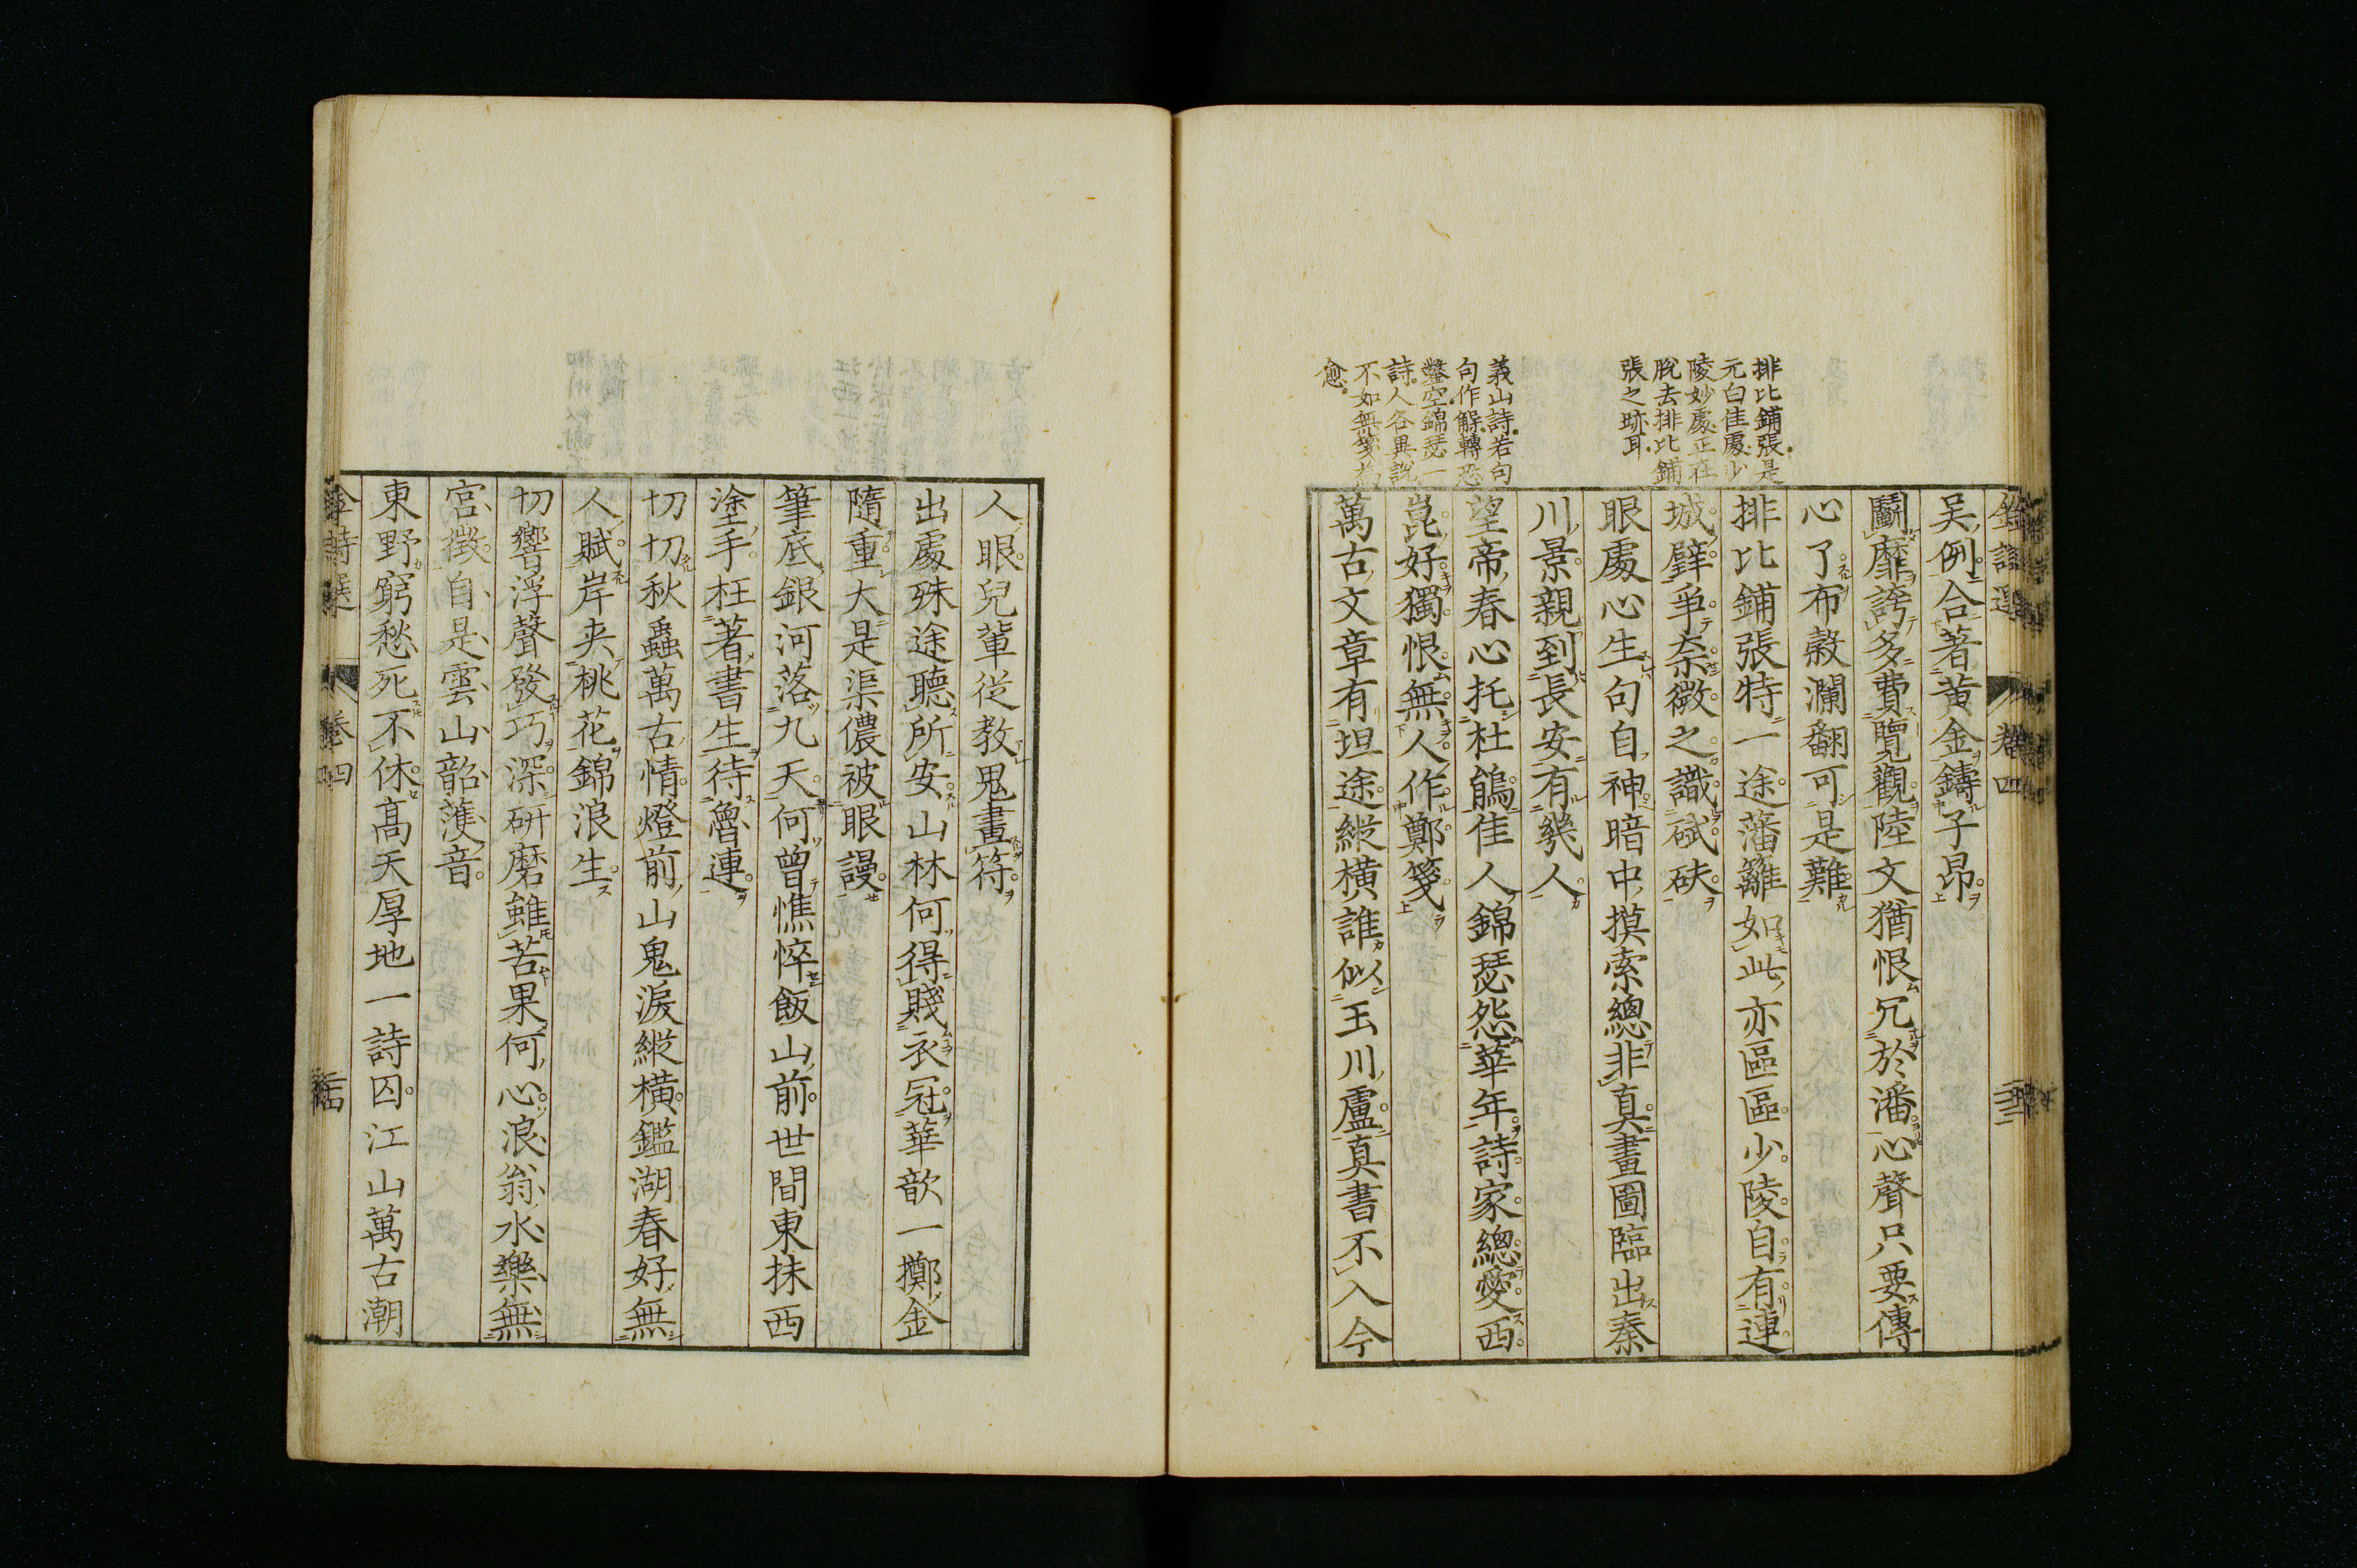 排比鋪張是
元白佳處少
陵妙處正在
脫去排比鋪
張之跡耳
義山詩若句
句作解轉恐
鑿空錦瑟一
詩人各異說
不如無箋為
愈
卷四
吳例合著黃金鑄子昂
鬭靡誇多費覽觀陸文猶恨冗於潘心聲只要傳
心了布穀瀾翻可是難
排比鋪張特一途藩籬如此亦區區少陵自有連
城璧爭奈微之識碔砆
眼處心生句自神暗中摸索總非真畫圖臨出秦
川景親到長安有幾人
望帝春心托杜鵑佳人錦瑟怨華年詩家總愛西
崑好獨恨無人作鄭箋
萬古文章有坦途縱橫誰似玉川盧真書不入今
人眼兒輩從教鬼畫符
出處殊途聽所安山林何得賤衣冠華歆一擲金
隨重大是渠儂被眼謾
筆底銀河落九天何曾憔悴飯山前世間東抹西
塗手枉著書生待魯連
切切秋蟲萬古情燈前山鬼淚縱橫鑑湖春好無
人賦岸夾桃花錦浪生
切響浮聲發巧深研磨雖苦果何心浪翁水樂無
宮徵自是雲山韶濩音
東野窮愁死不休高天厚地一詩囚江山萬古潮
金詩選 卷四